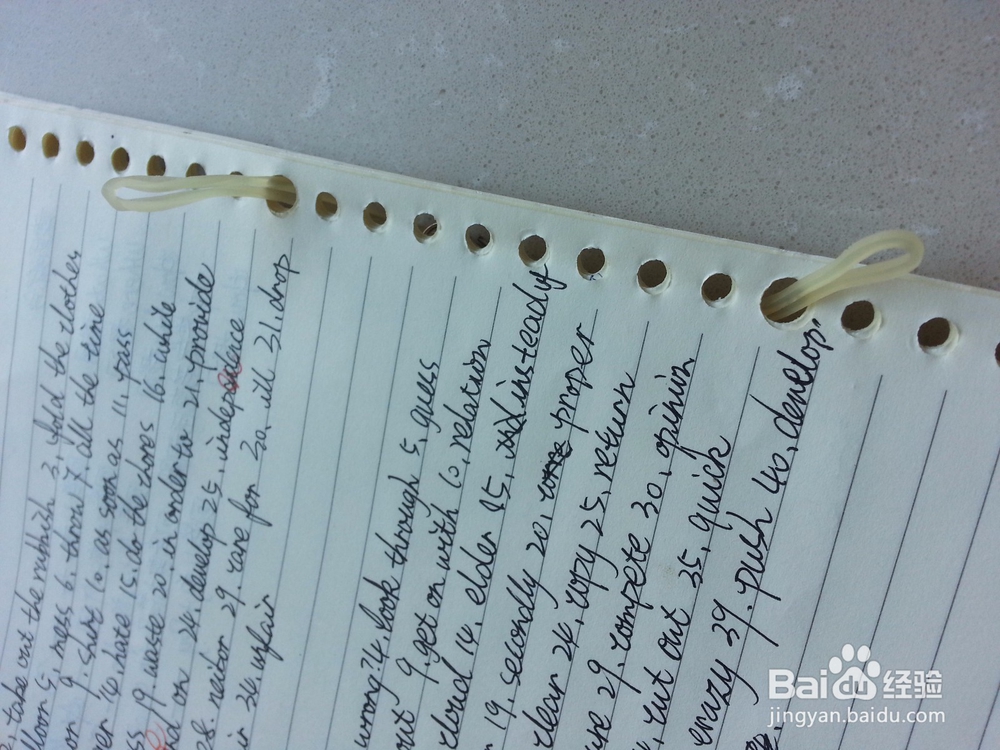 take out the rubbish 3, fold the clothes
floor 5, mess 6. throw 7, all the time
9. shirt 10. as soon as 11, pass
14. hate 15. do the chores 16. while
19 waste 20. in order to 21. provide
on 24. develop 25. independence
28. neibor 29. care for 30. ill 31. drop
34. unfair
wrong 4. look through 5. guess
out 9. get on with 10. relation
cloud 14. elder 15. instead
19. secondly 20. proper
clear 24. copy 25. return
29. compete 30. opinion
cut out 35. quick
crazy 39. push 40. develop
Baidu经验
jingyan.baidu.com